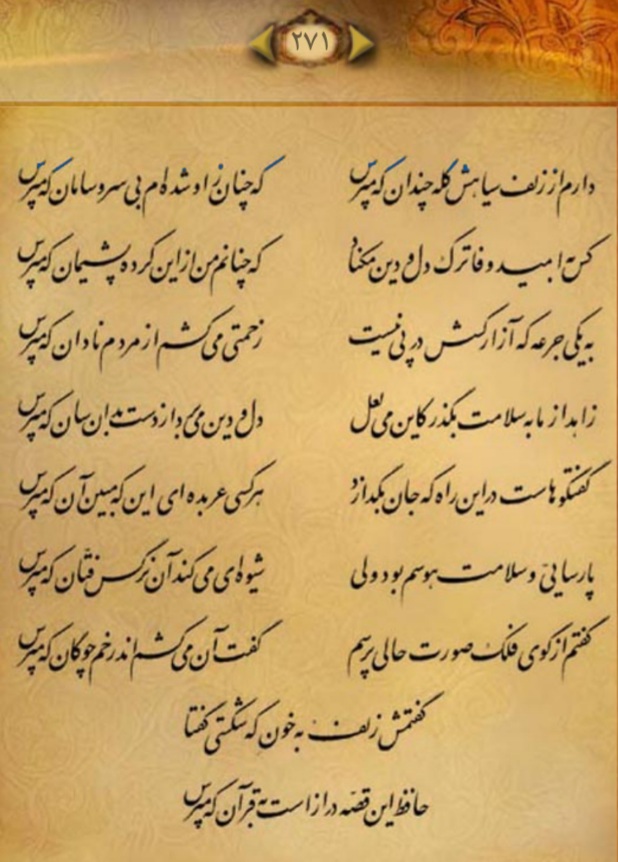 ۲۷۱
دارم از زلف سیاهش گله چندان که مپرس
که چنان ز او شده‌ام بی سر و سامان که مپرس
کس به امید وفا ترک دل و دین مکناد
که چنانم من از این کرده پشیمان که مپرس
به یکی جرعه که آزار کسش در پی نیست
زحمتی می‌کشم از مردم نادان که مپرس
زاهد از ما به سلامت بگذر کاین می لعل
دل و دین می‌برد از دست بدان سان که مپرس
گفتگوهاست در این راه که جان بگدازد
هر کسی عربده‌ای این که مبین آن که مپرس
پارسایی و سلامت هوسم بود ولی
شیوه‌ای می‌کند آن نرگس فتّان که مپرس
گفتم از گوی فلک صورت حالی پرسم
گفت آن می‌کشم اندر خم چوگان که مپرس
گفتمش زلف به خون که شکستی گفتا
حافظ این قصّه دراز است به قرآن که مپرس